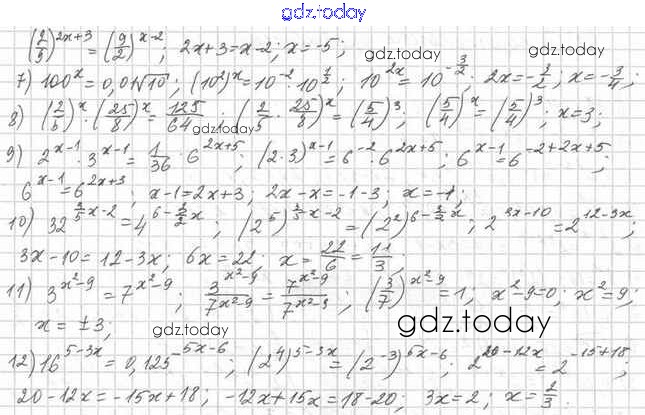 gdz.today
(2/9)^{2x+3} = (9/2)^{x-2}; 2x+3=x-2; x=-5;
gdz.today
7) 100^x = 0,01√10; (10^2)^x = 10^{-2}·10^{1/2}; 10^{2x} = 10^{-3/2}; 2x = -3/2; x = -3/4;
8) (2/5)^x · (25/8)^x = 125/64; (2/5 · 25/8)^x = (5/4)^3; (5/4)^x = (5/4)^3; x=3;
gdz.today
9) 2^{x-1}·3^{x-1} = 1/36 · 6^{2x+5}; (2·3)^{x-1} = 6^{-2}·6^{2x+5}; 6^{x-1} = 6^{-2+2x+5};
6^{x-1} = 6^{2x+3}; x-1=2x+3; 2x-x=-1-3; x=-4;
10) 32^{3/5x-2} = 4^{6-3/2x}; (2^5)^{3/5x-2} = (2^2)^{6-3/2x}; 2^{3x-10} = 2^{12-3x};
3x-10=12-3x; 6x=22; x = 22/6 = 11/3;
11) 3^{x^2-9} = 7^{x^2-9}; 3^{x^2-9}/7^{x^2-9} = 7^{x^2-9}/7^{x^2-9}; (3/7)^{x^2-9} = 1; x^2-9=0; x^2=9;
x = ±3;
gdz.today
gdz.today
12) 16^{5-3x} = 0,125^{5x-6}; (2^4)^{5-3x} = (2^{-3})^{5x-6}; 2^{20-12x} = 2^{-15+18};
20-12x=-15x+18; -12x+15x=18-20; 3x=2; x = 2/3.